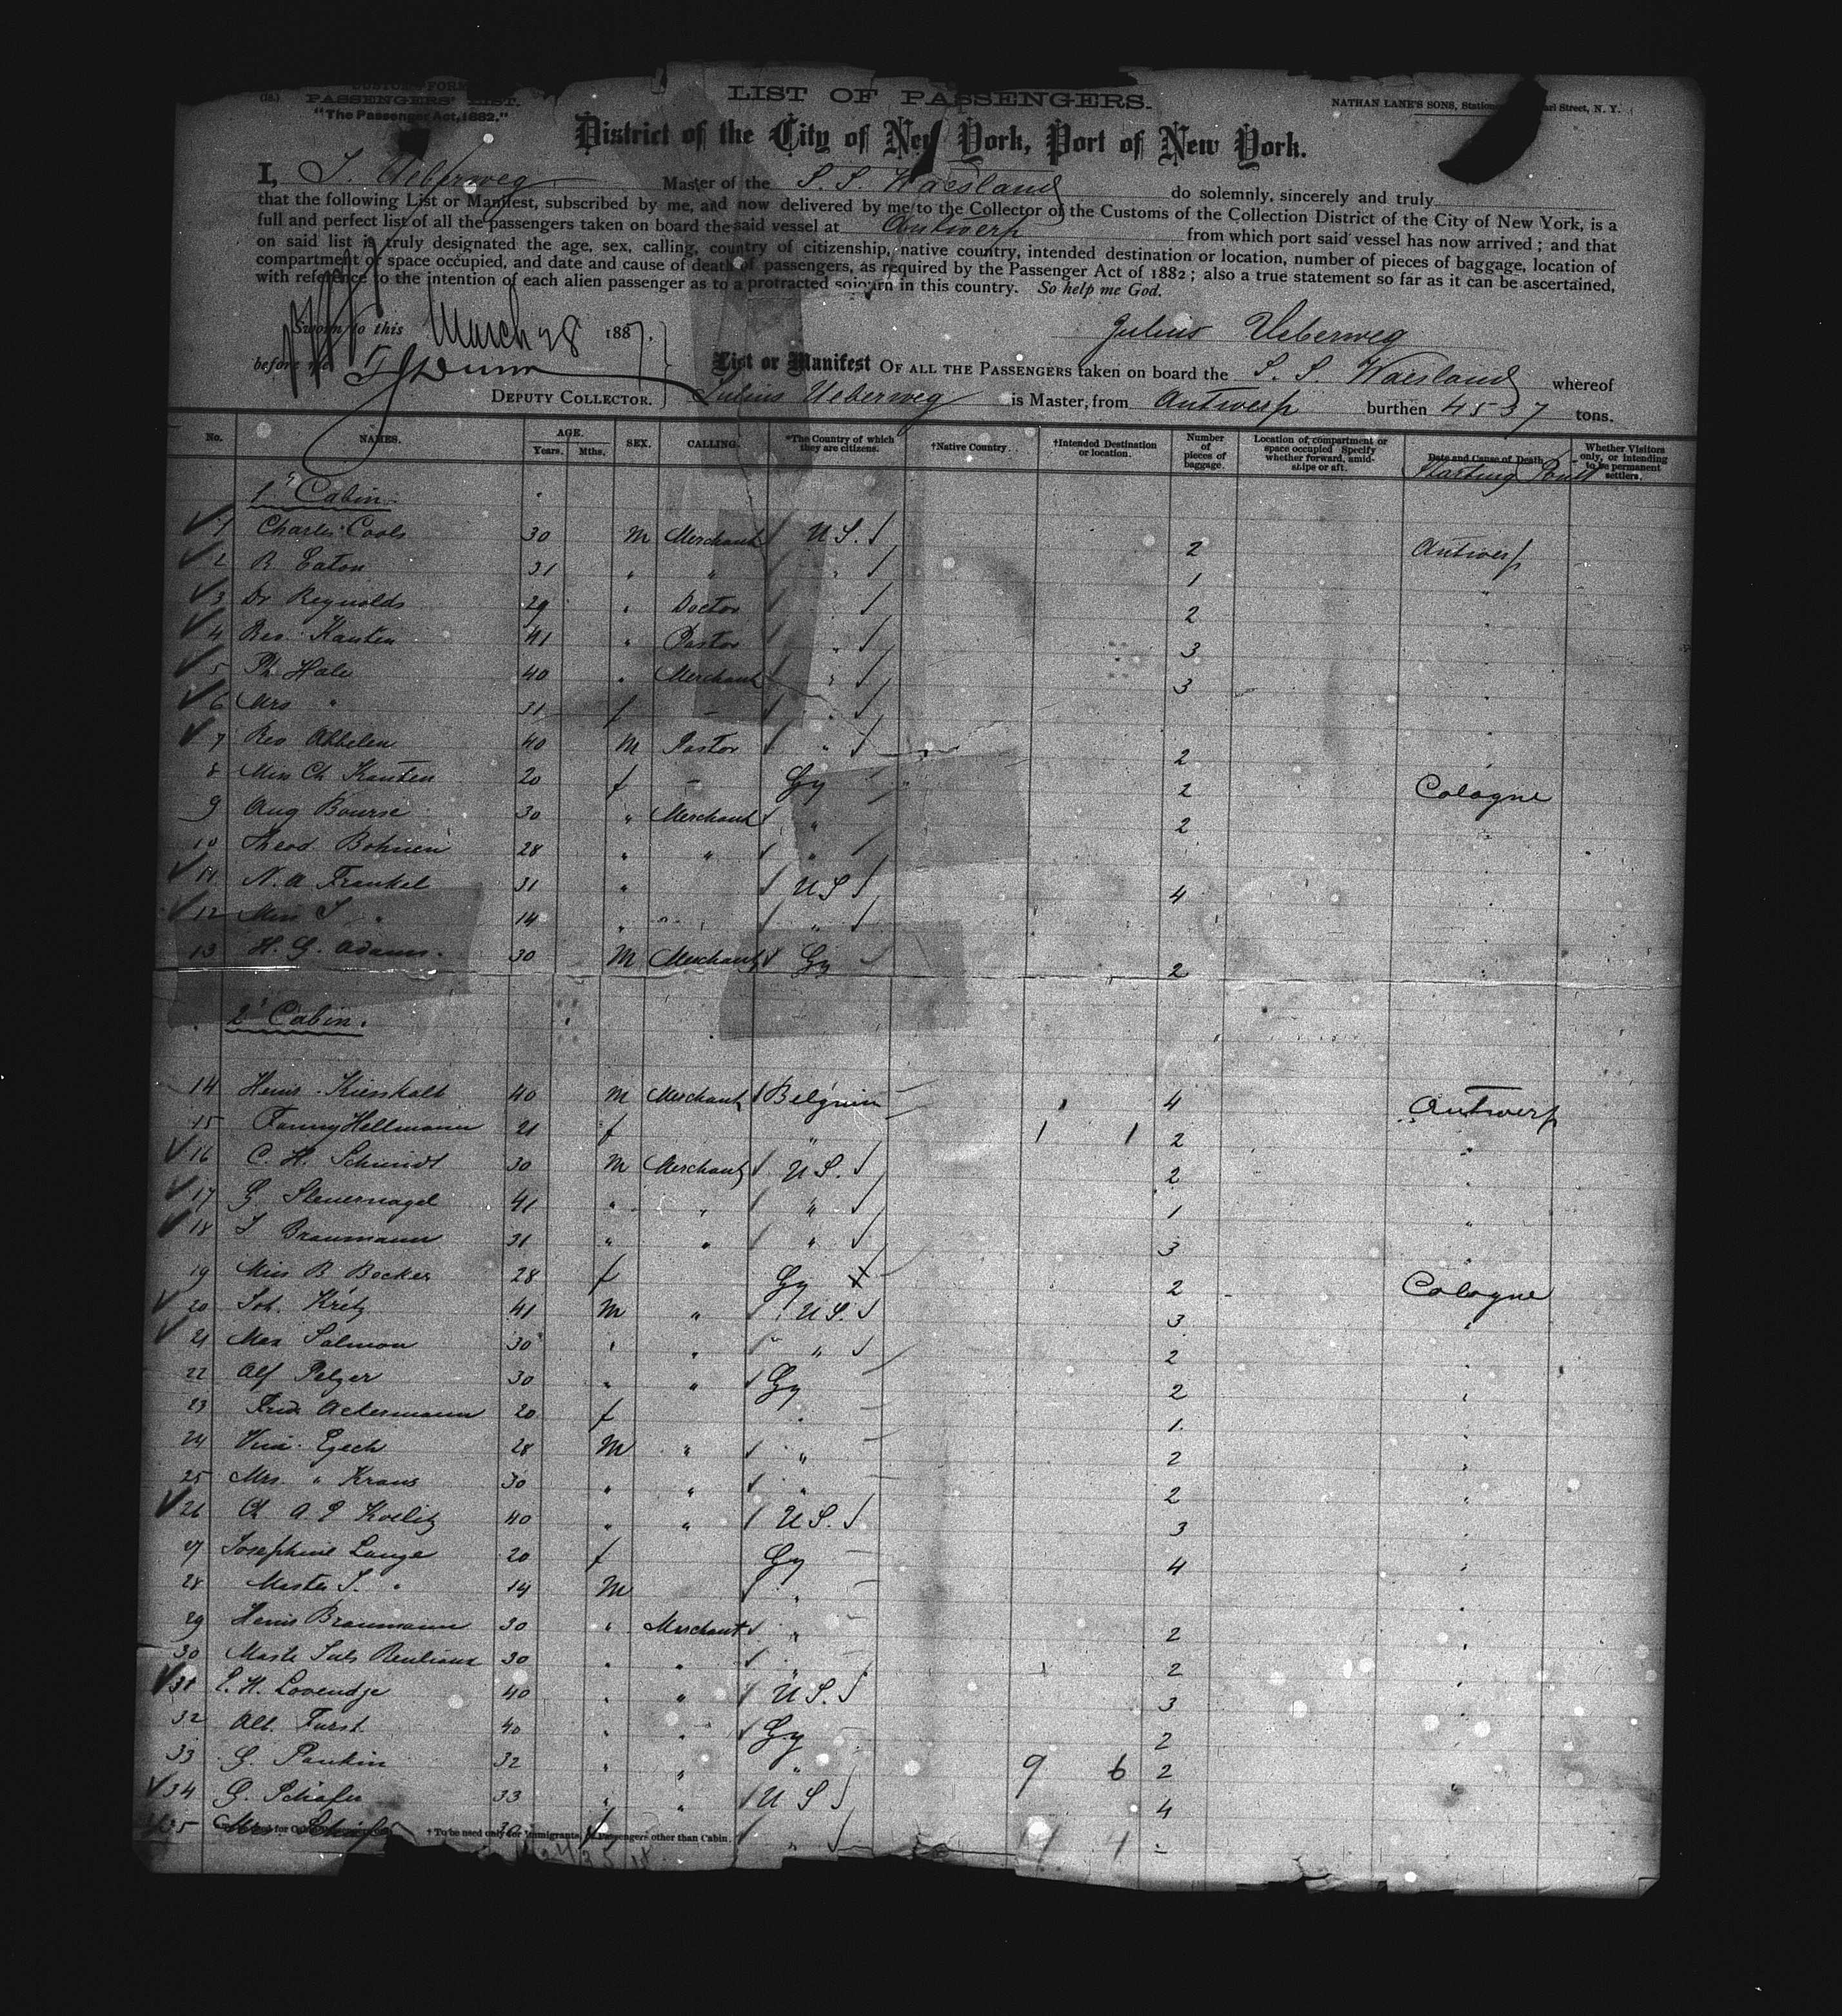 CUSTOMS FORM
PASSENGERS' LIST.
"The Passenger Act, 1882."
LIST OF PASSENGERS.
NATHAN LANE'S SONS, Street, N. Y.
District of the City of New York, Port of New York.
I, J. Ueberweg Master of the S. S. Waesland do solemnly, sincerely and truly
that the following List or Manifest, subscribed by me, and now delivered by me to the Collector of the Customs of the Collection District of the City of New York, is a
full and perfect list of all the passengers taken on board the said vessel at Antwerp from which port said vessel has now arrived; and that
on said list is truly designated the age, sex, calling, country of citizenship, native country, intended destination or location, number of pieces of baggage, location of
compartment or space occupied, and date and cause of death of passengers, as required by the Passenger Act of 1882; also a true statement so far as it can be ascertained,
with reference to the intention of each alien passenger as to a protracted sojourn in this country. So help me God.
Sworn to this March 28 1887.
Julius Ueberweg
before me
DEPUTY COLLECTOR.
List or Manifest OF ALL THE PASSENGERS taken on board the S. S. Waesland whereof
Julius Ueberweg is Master, from Antwerp burthen 4537 tons.
No. NAMES. AGE. Years. Mths. SEX. CALLING. *The Country of which they are citizens. †Native Country. †Intended Destination or location. Number of pieces of baggage. Location of compartment or space occupied Specify whether forward, amidships or aft. Date and Cause of Death. Starting Point Whether Visitors only, or intending to be permanent settlers.
1" Cabin.
1 Charles Cools 30 M Merchant U S. 2 Antwerp
2 R Eaton 31 " " " 1 "
3 Dr Reynolds 29 " Doctor " 2 "
4 Rev. Kauten 41 " Pastor " 3 "
5 Ph. Hale 40 " Merchant " 3 "
6 Mrs " 31 f - " "
7 Rev Abbelen 40 M Pastor " 2 "
8 Miss Ch Kauten 20 f - Gy 2 Cologne
9 Aug Bourse 30 " Merchant " 2
10 Theod. Bohnen 28 " " "
11 N. A Frankel 31 " U S 4
12 Miss J " 14 " " "
13 H. G. Adams. 30 M Merchant Gy 2
2' Cabin.
14 Henri Kieskalt 40 M Merchant Belgium 4 Antwerp
15 Fanny Hellmann 21 f " 1 1 2 "
16 C. H. Schmidt 30 M Merchant U S. 2 "
17 G Steuernagel 41 " " " 1 "
18 J Braumann 31 " " " 3 "
19 Miss B Becker 28 f Gy 2 Cologne
20 Joh. Kretz 41 M " U S. 3 "
21 Max Salmon 30 " " " 2 "
22 Alf Pelzer 30 " " Gy 2 "
23 Ackermann 20 f " 1 "
24 28 M " " 2 "
25 Mrs. " Kraus 30 " " " 2 "
26 40 " " U S. 3
27 Josephine Lange 20 f Gy 4 "
28 Master J. " 14 M " "
29 Henri Braumann 30 " Merchant " 2 "
30 30 " " " 2 "
31 40 " " U S. 3 "
32 Alb. Furst 40 " " Gy 2
33 G. Pankin 32 " " " 9 6 2 "
34 G. Schäfer 33 " " U S 4
35 Mrs f " 11 4 -
†To be used only for immigrants, or Passengers other than Cabin.